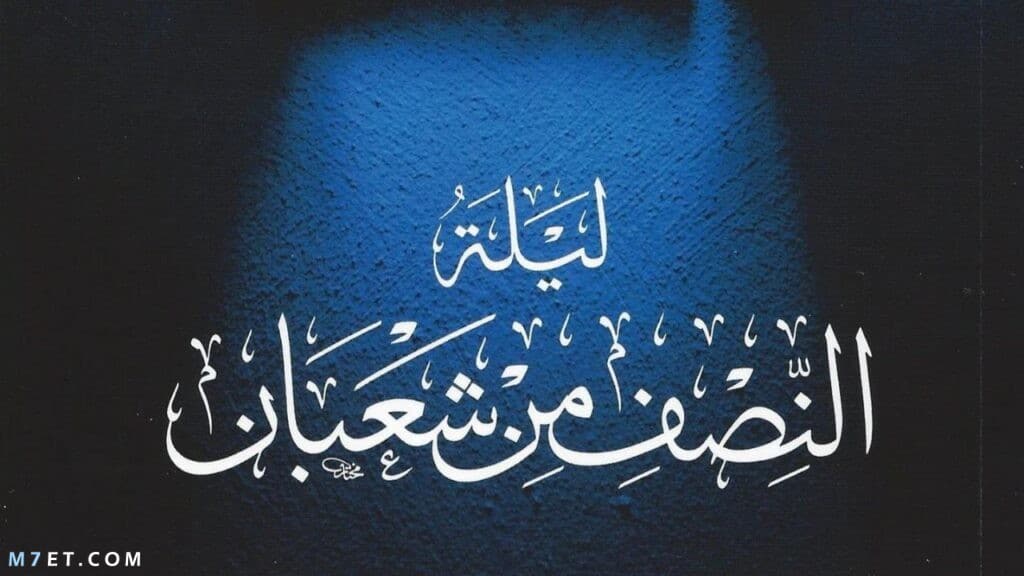 لَيْلَةُ
النِّصْفِ مِنْ شَعْبَان
M7ET.COM